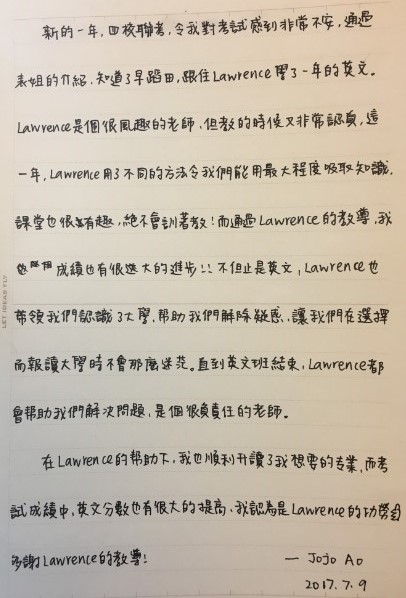 新的一年，四校聯考，令我對考試感到非常不安，通過
表姐的介紹，知道了早稻田，跟住Lawrence學了一年的英文。
Lawrence是個很風趣的老師，但教的時候又非常認真，這
一年，Lawrence用了不同的方法令我們能用最大程度吸取知識，
課堂也很有趣，絕不會訓著教！而通過Lawrence的教導，我
成績也有很進大的進步!! 不但止是英文，Lawrence也
帶領我們認識了大學，幫助我們解除疑惑，讓我們在選擇
而報讀大學時不會那麼迷茫。直到英文班結束，Lawrence都
會幫助我們解決問題，是個很負責任的老師。
在Lawrence的幫助下，我也順利升讀了我想要的專業，而考
試成績中，英文分數也有很大的提高，我認為是Lawrence的功勞
多謝Lawrence的教導！
— JoJo Ao
2017.7.9
LET IDEAS FLY